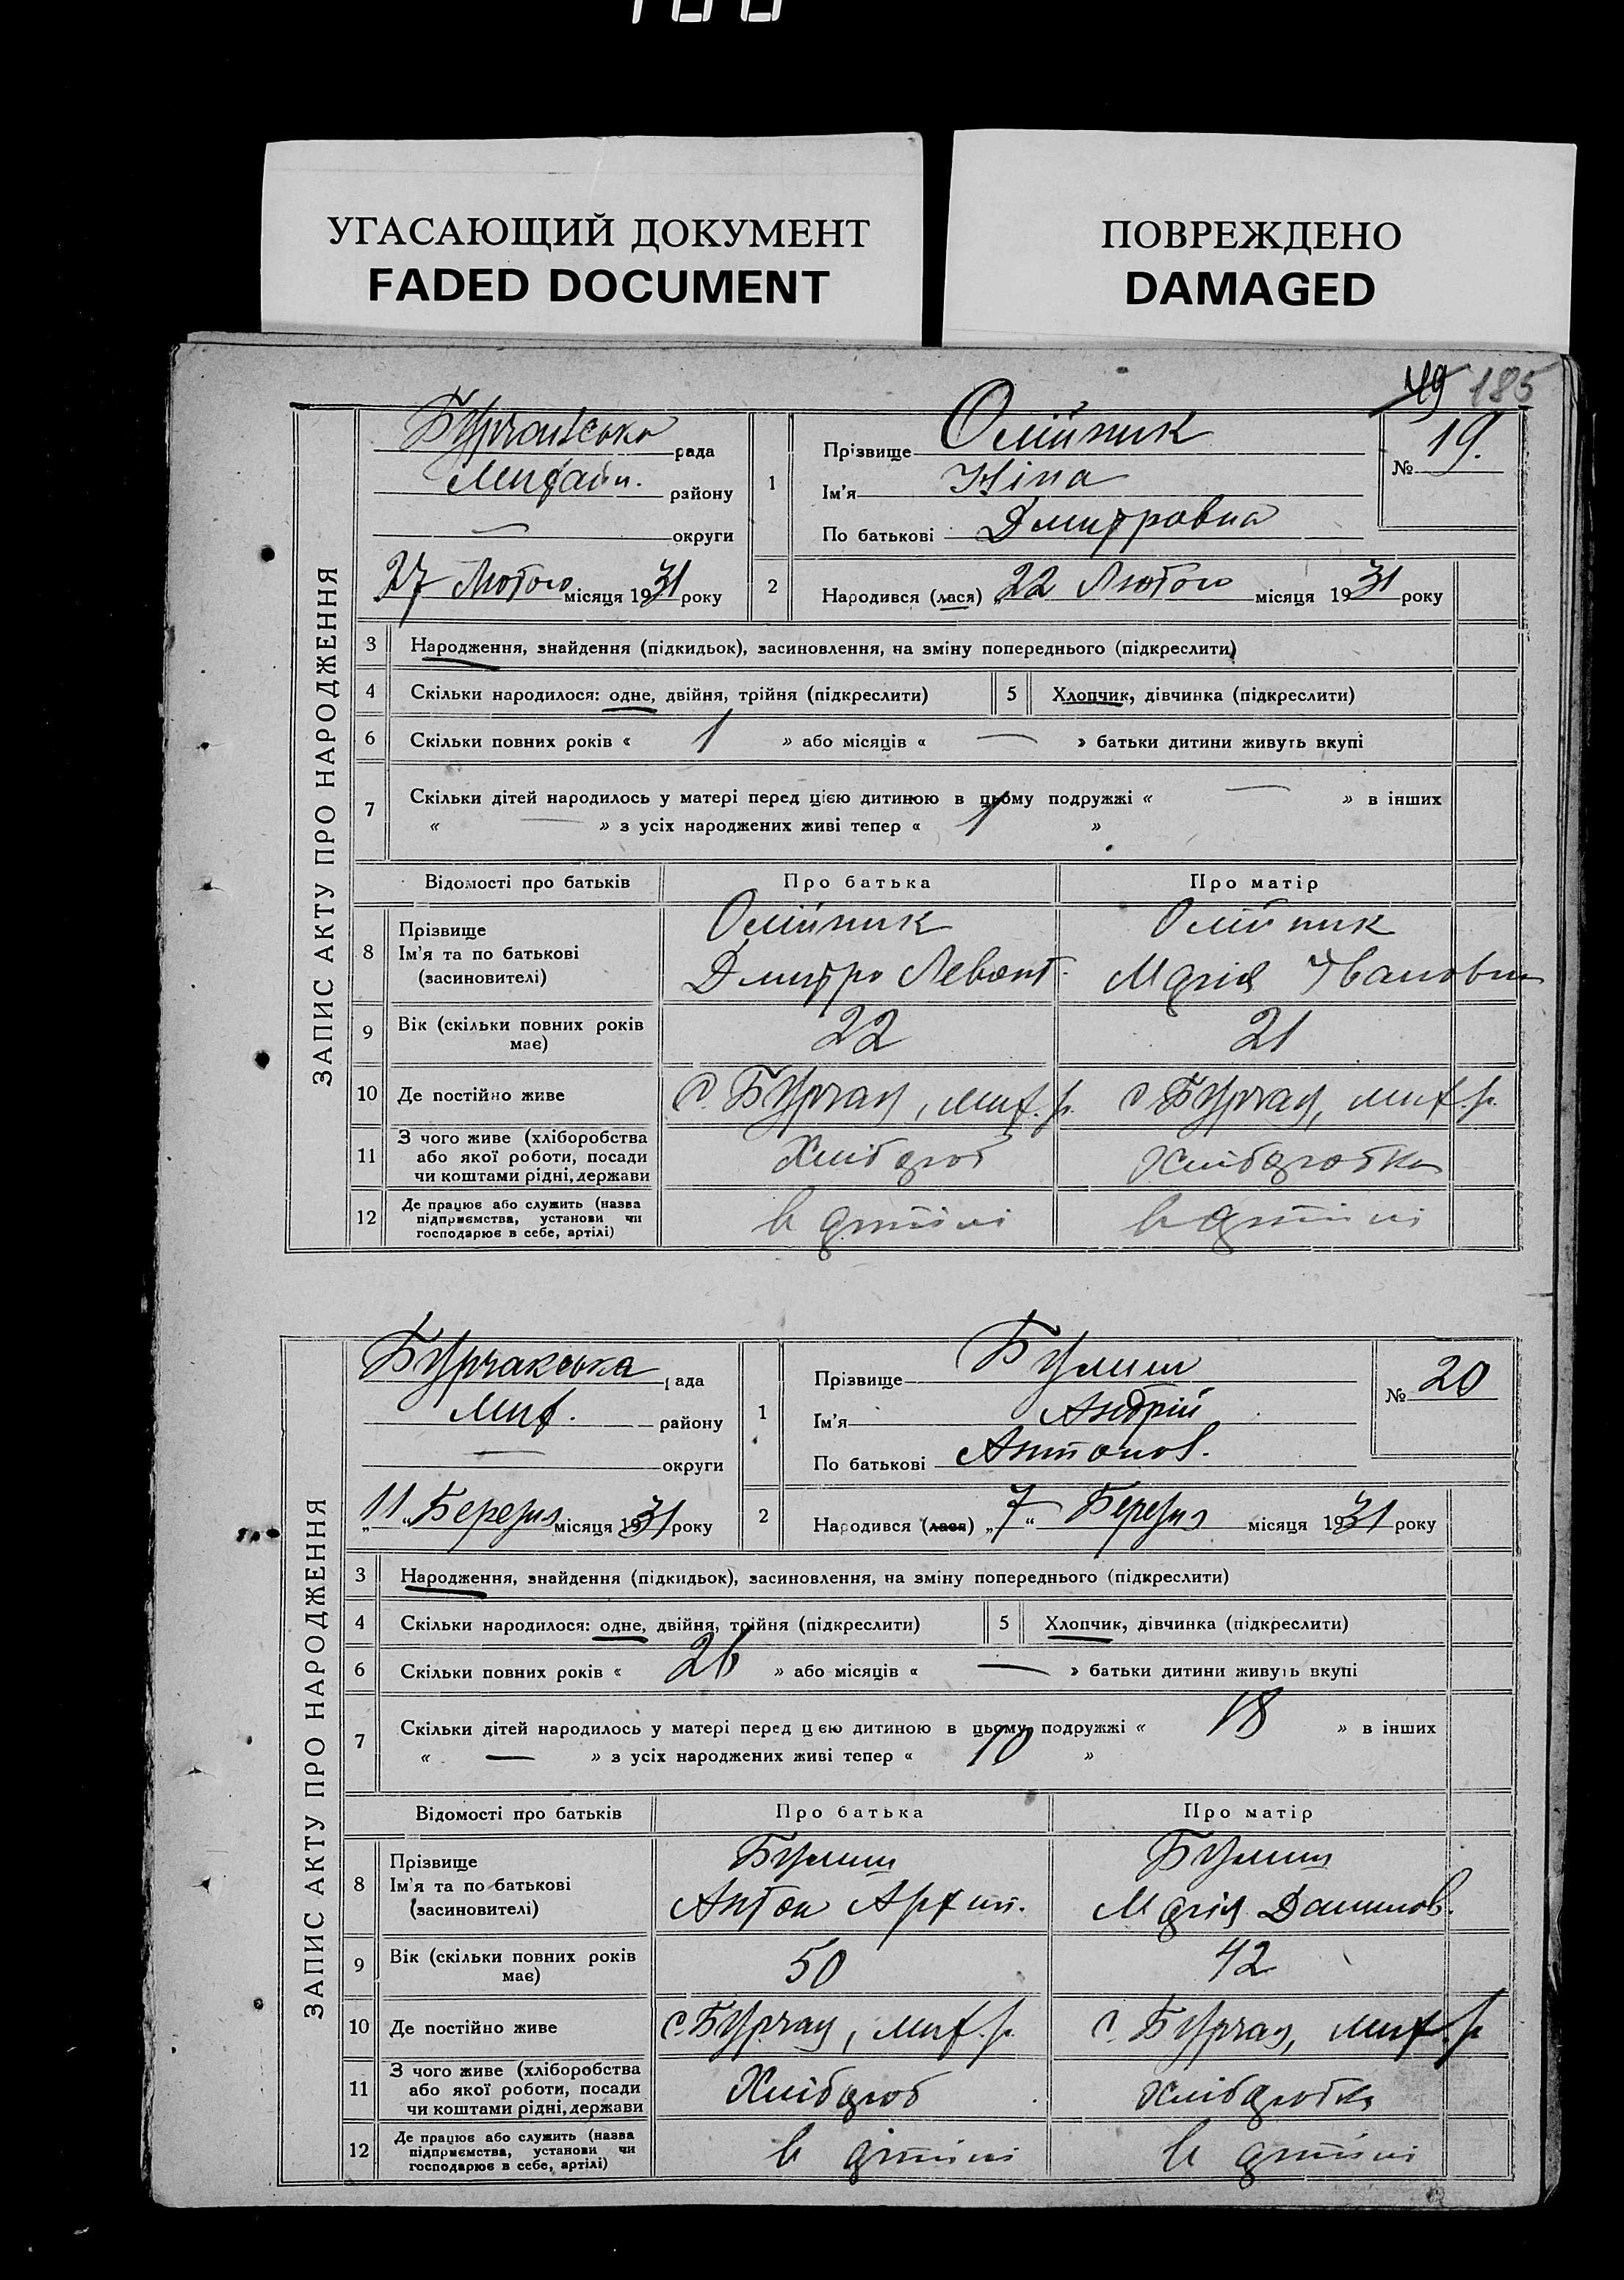 УГАСАЮЩИЙ ДОКУМЕНТ
FADED DOCUMENT
ПОВРЕЖДЕНО
DAMAGED
49 185
ЗАПИС АКТУ ПРО НАРОДЖЕННЯ
Бурчаксько рада
района району
— округи
27 Лютого місяця 1931 року
1 Прізвище Олійник
Ім'я Ніна
По батькові Дмитровна
№ 19.
2 Народився (лася) „22 Лютого місяця 1931 року
3 Народження, знайдення (підкидьок), засиновлення, на зміну попереднього (підкреслити)
4 Скільки народилося: одне, двійня, трійня (підкреслити) 5 Хлопчик, дівчинка (підкреслити)
6 Скільки повних років « 1 » або місяців « — » батьки дитини живуть вкупі
7 Скільки дітей народилось у матері перед цією дитиною в цьому подружжі « — » в інших
« — » з усіх народжених живі тепер « 1 »
Відомості про батьків Про батька Про матір
8 Прізвище Олійник Олійник
Ім'я та по батькові
(засиновителі) Дмитро Левонт. Марія Івановна
9 Вік (скільки повних років
має) 22 21
10 Де постійно живе с. Бурчак, мих. р. с. Бурчак, мих. р.
11 З чого живе (хліборобства
або якої роботи, посади
чи коштами рідні, держави Хлібороб Хліборобка
12 Де працює або служить (назва
підприємства, установи чи
господарює в себе, артілі) в артілі в артілі
ЗАПИС АКТУ ПРО НАРОДЖЕННЯ
Бурчакська рада
Мих. району
— округи
„11„ Березня місяця 1931 року
1 Прізвище Булиш
Ім'я Андрій
По батькові Антонов.
№ 20
2 Народився (лася) „7“ Березня місяця 1931 року
3 Народження, знайдення (підкидьок), засиновлення, на зміну попереднього (підкреслити)
4 Скільки народилося: одне, двійня, трійня (підкреслити) 5 Хлопчик, дівчинка (підкреслити)
6 Скільки повних років « 26 » або місяців « — » батьки дитини живуть вкупі
7 Скільки дітей народилось у матері перед цією дитиною в цьому подружжі « 18 » в інших
« — » з усіх народжених живі тепер « 10 »
Відомості про батьків Про батька Про матір
8 Прізвище Булиш Булиш
Ім'я та по батькові
(засиновителі) Антон Архип. Марія Данилов.
9 Вік (скільки повних років
має) 50 42
10 Де постійно живе с. Бурчак, мих. р. с. Бурчак, мих. р
11 З чого живе (хліборобства
або якої роботи, посади
чи коштами рідні, держави Хлібороб Хліборобка
12 Де працює або служить (назва
підприємства, установи чи
господарює в себе, артілі) в артілі в артілі